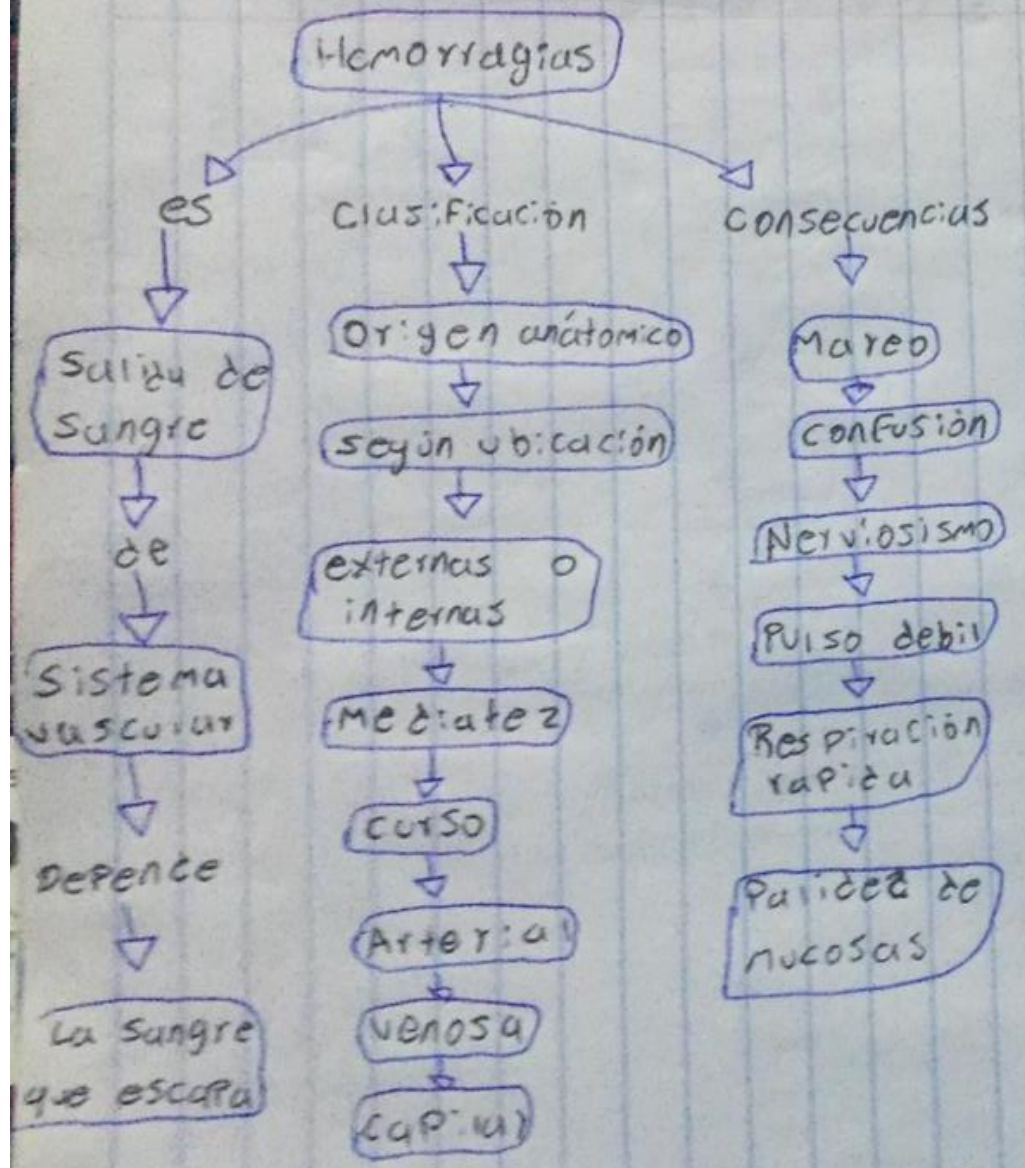 Hemorragias
es
Salida de
Sangre
de
Sistema
vascular
Depende
La sangre
que escapa
Clasificación
Origen anátomico
según ubicación
externas o
internas
Mediatez
curso
Arterial
venosa
capilar
Consecuencias
Mareo
confusión
Nerviosismo
Pulso debil
Respiración
rapida
Palidez de
mucosas